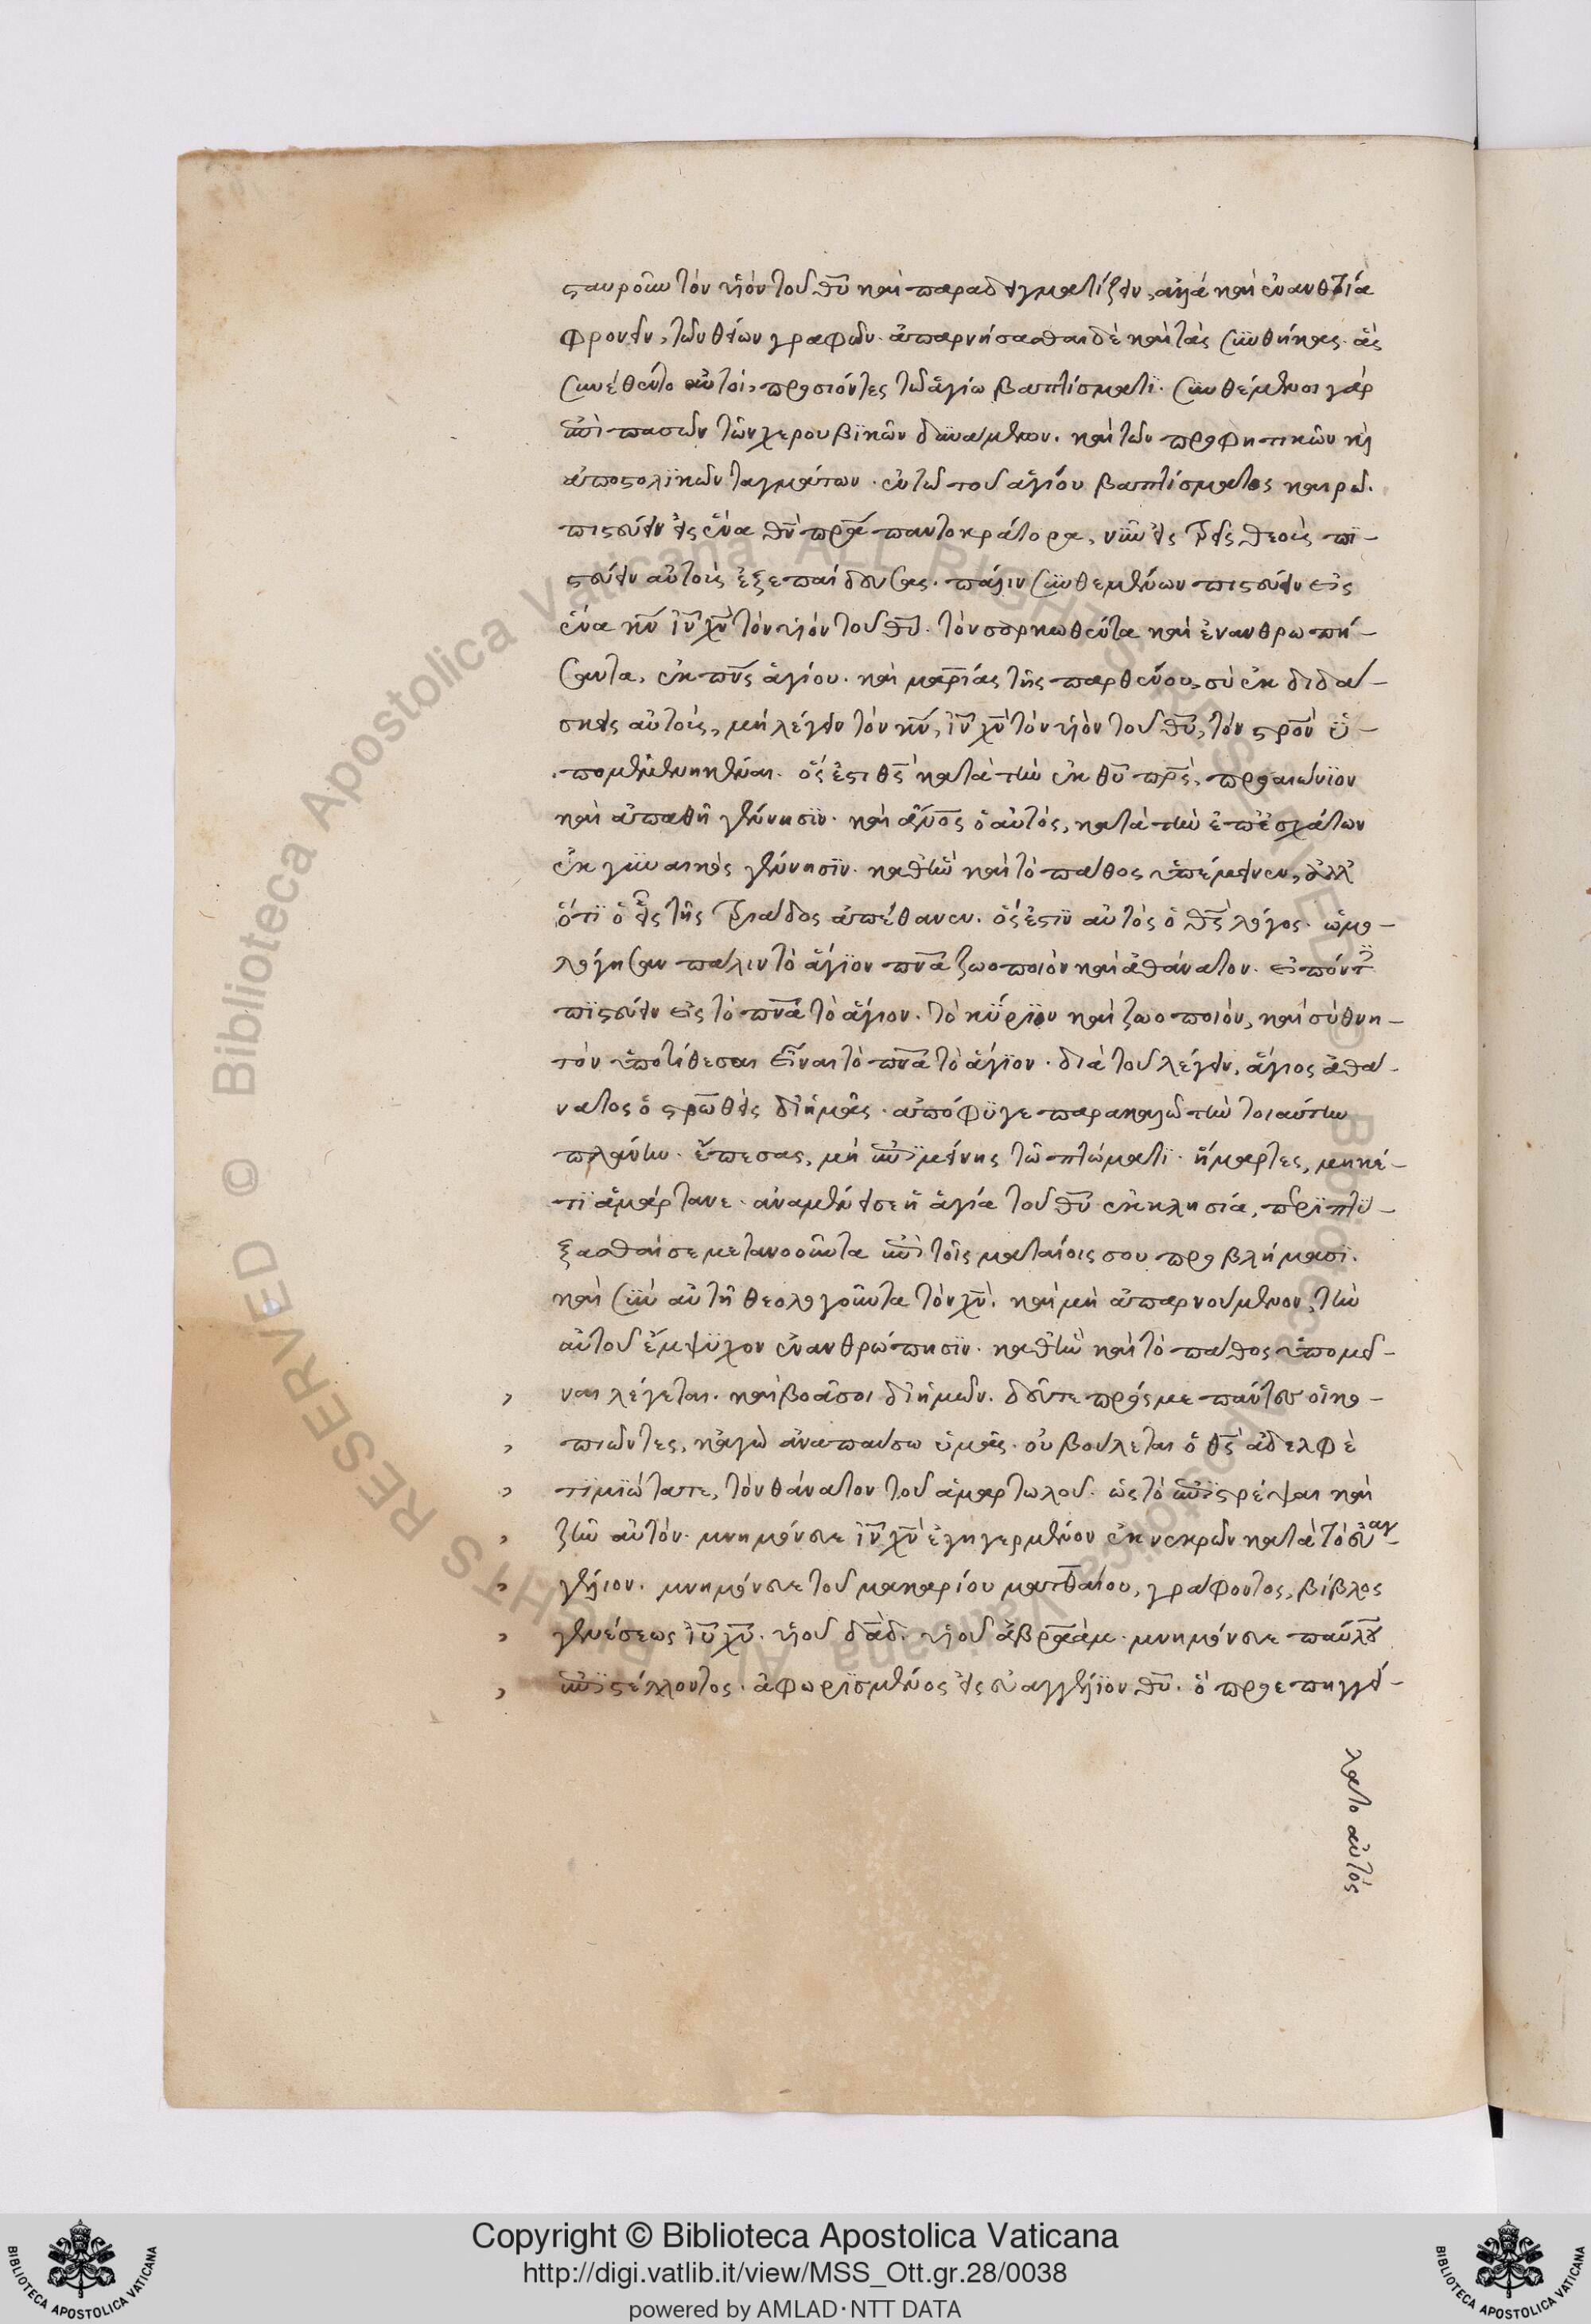 σταυροῦν τὸν υἱὸν τοῦ θ̅υ̅ καὶ παραδειγματίζειν, ἀλλὰ καὶ ἐναντία
φρονεῖν, τῶν θείων γραφῶν. ἀπαρνήσασθαι δὲ καὶ τὰς συνθήκας. ἃς
συνέθεντο αὐτοί, προσιόντες τῶ ἁγίω βαπτίσματι. συνθέμενοι γὰρ
ἐπὶ πασῶν τῶν χερουβικῶν δυνάμεων. καὶ τῶν προφητικῶν κὶ
ἀποστολικῶν ταγμάτων. ἐν τῶ τοῦ ἁγίου βαπτίσματος καιρῶ.
πιστεύειν εἰς ἕνα θ̅ν̅ π̅ρ̅α̅ παντοκράτορα, νῦν εἰς τρεῖς θεοὺς πι-
στεύειν αὐτοὺς ἐξεπαίδευσας. πάλιν συνθεμένων πιστεύειν εἰς
ἕνα κ̅ν̅ ι̅ν̅ χ̅ν̅ τὸν υἱὸν τοῦ θ̅υ̅. τὸν σαρκωθέντα καὶ ἐνανθρωπή-
σαντα, ἐκ π̅ν̅ς̅ ἁγίου. καὶ μαρίας τῆς παρθένου, σὺ ἐκδιδά-
σκεις αὐτοὺς, μὴ λέγειν τὸν κ̅ν̅, ι̅ν̅ χ̅ν̅ τὸν υἱὸν τοῦ θ̅υ̅, τὸν σ̅ρ̅ο̅ν̅ ὑ-
πομεμενηκέναι. ὅς ἐστι θ̅ς̅ κατὰ τὴν ἐκ θ̅υ̅ π̅ρ̅ς̅, προαιώνιον
καὶ ἀπαθῆ γέννησιν. καὶ ἄ̅ν̅ο̅ς̅ ὁ αὐτὸς, κατὰ τὴν ἐπ' ἐσχάτων
ἐκ γυναικὸς γέννησιν. καθ' ἣν καὶ τὸ πάθος ὑπέμεινεν, ἀλλ'
ὅτι ὁ εἷς τῆς τριάδος ἀπέθανεν. ὅς ἐστιν αὐτὸς ὁ θ̅ς̅ λόγος. ὡμο-
λόγησαν πάλιν τὸ ἅγιον π̅ν̅α̅ ζωοποιὸν καὶ ἀθάνατον. εἰπόντες
πιστεύειν εἰς τὸ π̅ν̅α̅ τὸ ἅγιον. τὸ κύριον καὶ ζωοποιόν, καὶ σὺ θνη-
τὸν ὑποτίθεσαι εἶναι τὸ π̅ν̅α̅ τὸ ἅγιον. διὰ τοῦ λέγειν, ἅγιος ἀθά-
νατος ὁ σ̅ρ̅ω̅θεὶς δι' ἡμᾶς. ἀπόφυγε παρακαλῶ τὴν τοιαύτην
πλάνην. ἔπεσας, μὴ ἐπιμείνης τῶ πτώματι. ἥμαρτες, μηκέ-
τι ἁμάρτανε. ἀναμένει σε ἡ ἁγία τοῦ θ̅υ̅ ἐκκλησία, περιπτύ-
ξασθαί σε μετανοοῦντα ἐπὶ τοῖς ματαίοις σου προβλήμασι.
καὶ σὺν αὐτῆ θεολογοῦντα τὸν χ̅ν̅. καὶ μὴ ἀπαρνούμενον, τὴν
αὐτοῦ ἔμψυχον ἐνανθρώπησιν. καθ' ἣν καὶ τὸ πάθος ὑπομεῖ-
ναι λέγεται. καὶ βοᾶ σοι δι' ἡμῶν. δεῦτε πρός με πάντες οἱ κο-
πιῶντες, κἀγὼ ἀναπαύσω ὑμᾶς. οὐ βούλεται ὁ θ̅ς̅ ἀδελφὲ
τιμιώτατε, τὸν θάνατον τοῦ ἁμαρτωλοῦ. ὡς τὸ ἐπιστρέψαι καὶ
ζῆν αὐτόν. μνημόνευε ι̅ν̅ χ̅ν̅ ἐγηγερμένον ἐκ νεκρῶν κατὰ τὸ εὐαγ-
γέλιον. μνημόνευε τοῦ μακαρίου ματθαίου, γράφοντος, βίβλος
γενέσεως ι̅υ̅ χ̅υ̅. υἱοῦ δ̅α̅δ̅. υἱοῦ ἀβραάμ. μνημόνευε παύλου
ἐπιστέλλοντος. ἀφωρισμένος εἰς εὐαγγέλιον θ̅υ̅. ὃ προεπηγγεί-
λατο αὐτός
Copyright © Biblioteca Apostolica Vaticana
http://digi.vatlib.it/view/MSS_Ott.gr.28/0038
powered by AMLAD·NTT DATA